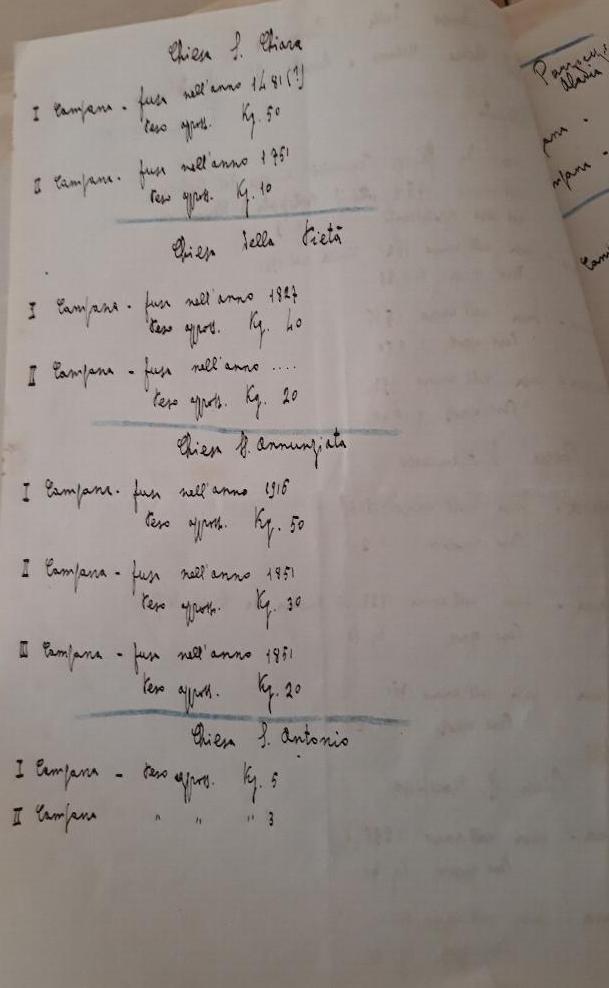 Chiesa S. Chiara
I Campana - fusa nell'anno 1481(?)
Peso appross. Kg. 50
II Campana - fusa nell'anno 1751
Peso appross. Kg. 10
Chiesa della Pietà
I Campana - fusa nell'anno 1827
Peso appross. Kg. 40
II Campana - fusa nell'anno ....
Peso appross. Kg. 20
Chiesa S. Annunziata
I Campana - fusa nell'anno 1916
Peso appross. Kg. 50
II Campana - fusa nell'anno 1851
Peso appross. Kg. 30
III Campana - fusa nell'anno 1851
Peso appross. Kg. 20
Chiesa S. Antonio
I Campana - Peso appross. Kg. 5
II Campana " " " 3